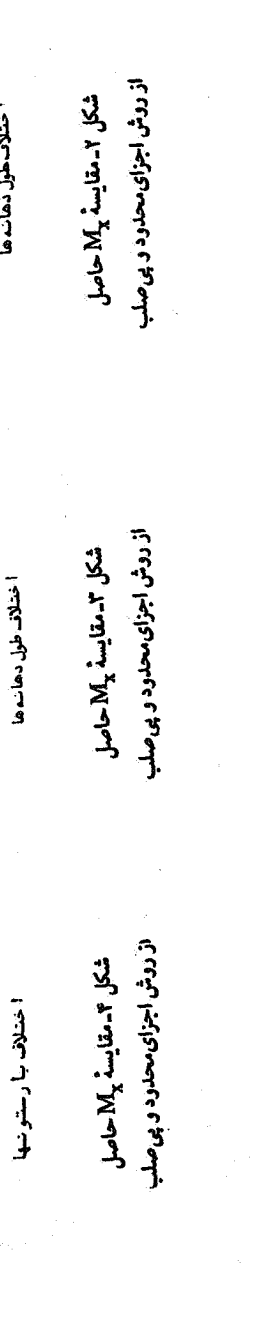 اختلاف طول دهانه ها
شکل ۲ـ مقایسهٔ Mx حاصل
از روش اجزای محدود و پی صلب
اختلاف طول دهانه ها
شکل ۳ـ مقایسهٔ Mx حاصل
از روش اجزای محدود و پی صلب
اختلاف بار ستونها
شکل ۴ـ مقایسهٔ Mx حاصل
از روش اجزای محدود و پی صلب